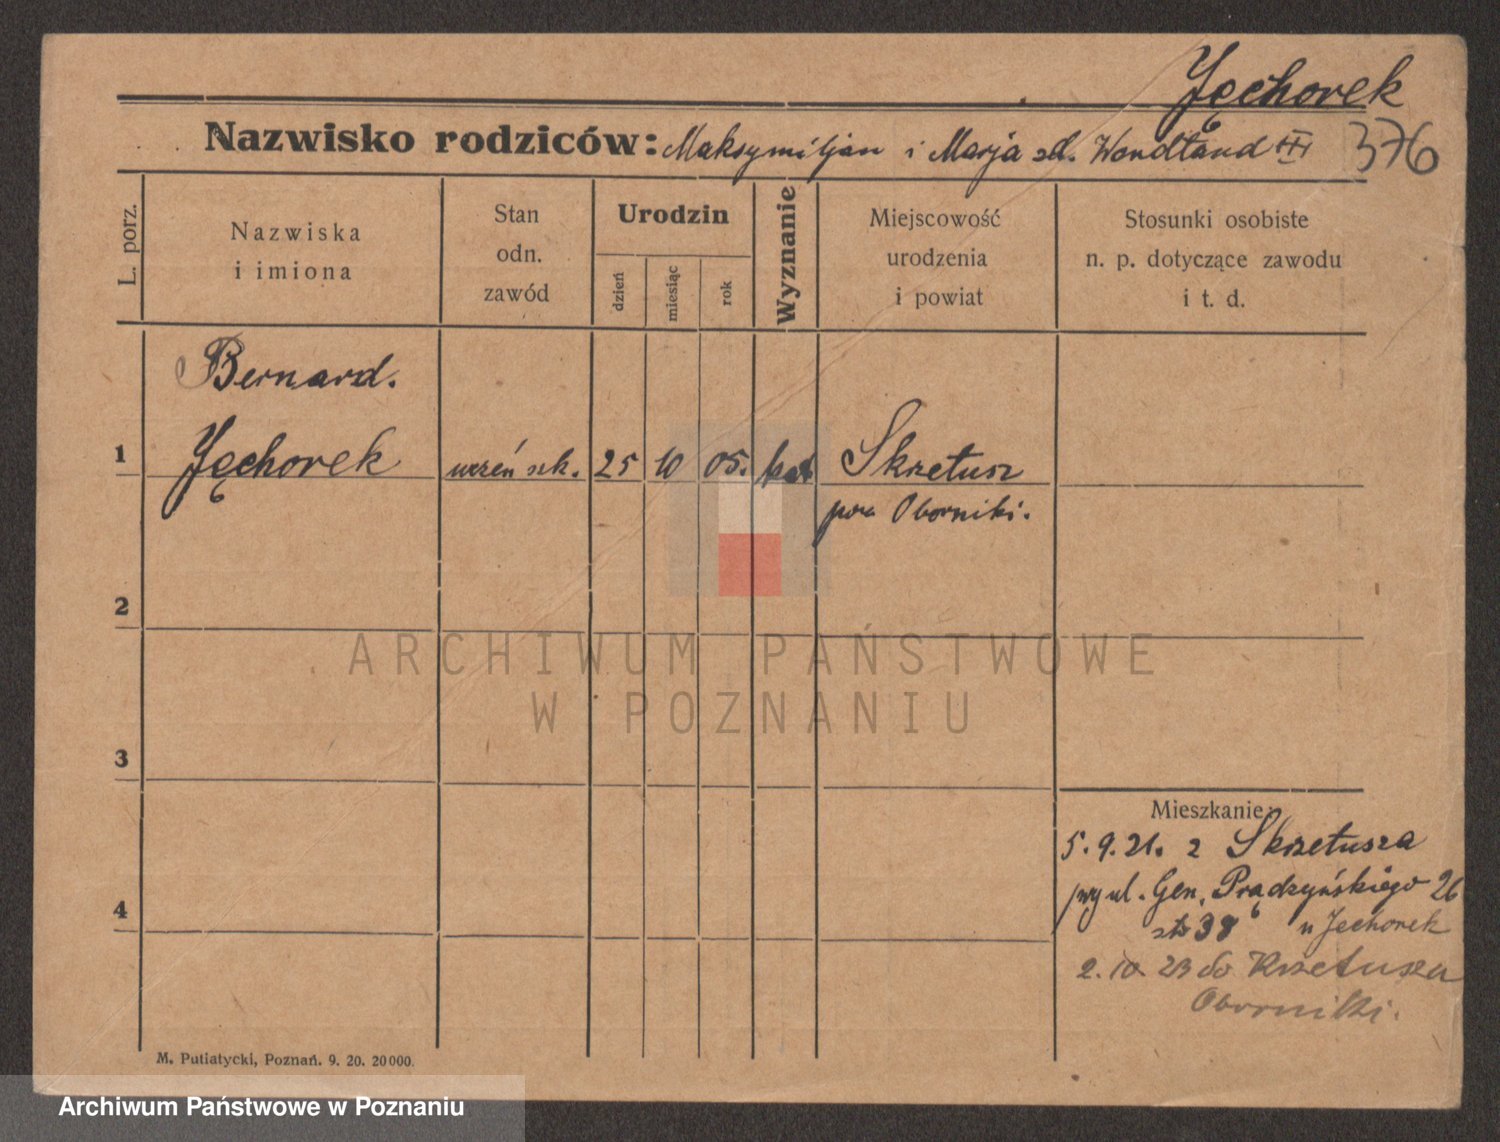 Jęchorek
Nazwisko rodziców: Maksymiljan i Marja zd. Wendland III 376
L. porz.
Nazwiska
i imiona
Stan
odn.
zawód
Urodzin
dzień
miesiąc
rok
Wyznanie
Miejscowość
urodzenia
i powiat
Stosunki osobiste
n. p. dotyczące zawodu
i t. d.
Bernard.
1 Jęchorek uczeń szk. 25 10 05. kat Skrzetusz
pow Oborniki.
2
3
4
Mieszkanie:
5.9.21. z Skrzetusza
ul. Gen. Prądzyńskiego 26
38 u Jęchorek
2. 23 do Krzetusza
Oborniki.
M. Putiatycki, Poznań. 9. 20. 20000.
ARCHIWUM PAŃSTWOWE
W POZNANIU
Archiwum Państwowe w Poznaniu